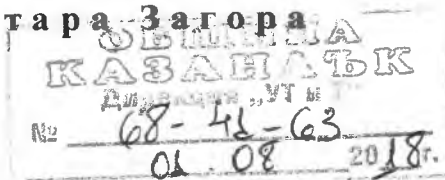 тара Загора
ОБЩИНА
КАЗАНЛЪК
Дирекция „УТ и
№ 68-41-63
01.08 2018г.